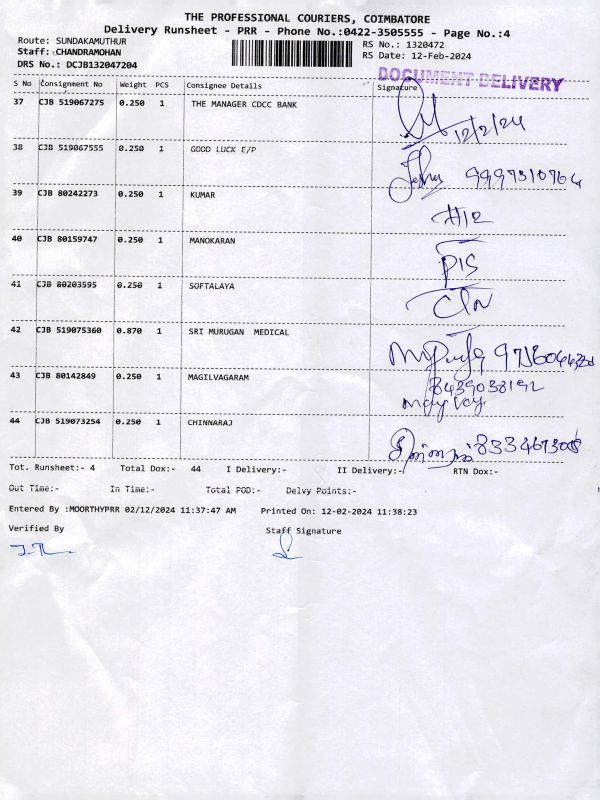 THE PROFESSIONAL COURIERS, COIMBATORE
Delivery Runsheet - PRR - Phone No.:0422-3505555 - Page No.:4
Route: SUNDAKAMUTHUR RS No.: 1320472
Staff: CHANDRAMOHAN RS Date: 12-Feb-2024
DRS No.: DCJB132047204
DOCUMENT DELIVERY
S No Consignment No Weight PCS Consignee Details Signature
37 CJB 519067275 0.250 1 THE MANAGER CDCC BANK
12/2/24
38 CJB 519067555 0.250 1 GOOD LUCK E/P
39 CJB 80242273 0.250 1 KUMAR
40 CJB 80159747 0.250 1 MANOKARAN
41 CJB 80203595 0.250 1 SOFTALAYA
42 CJB 519075360 0.870 1 SRI MURUGAN MEDICAL
43 CJB 80142849 0.250 1 MAGILVAGARAM
44 CJB 519073254 0.250 1 CHINNARAJ
Tot. Runsheet:- 4 Total Dox:- 44 I Delivery:- II Delivery:- RTN Dox:-
Out Time:- In Time:- Total POD:- Delvy Points:-
Entered By :MOORTHYPRR 02/12/2024 11:37:47 AM Printed On: 12-02-2024 11:38:23
Verified By Staff Signature